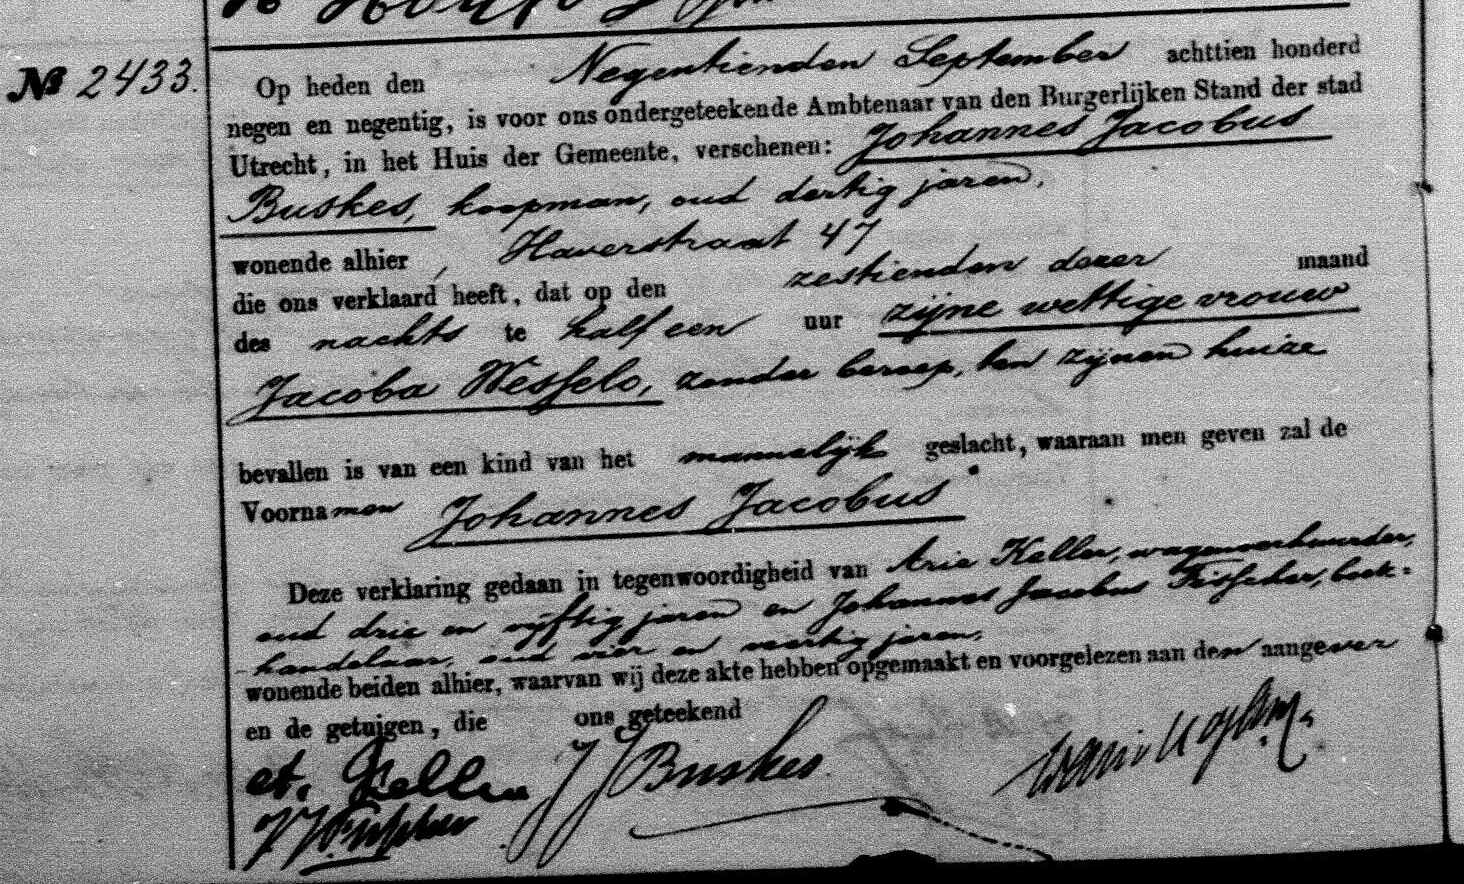 № 2433.
Op heden den Negentienden September achttien honderd
negen en negentig, is voor ons ondergeteekende Ambtenaar van den Burgerlijken Stand der stad
Utrecht, in het Huis der Gemeente, verschenen: Johannes Jacobus
Buskes, koopman, oud dertig jaren,
wonende alhier, Haverstraat 47
die ons verklaard heeft, dat op den zestienden dezer maand
des nachts te half een uur zijne wettige vrouw
Jacoba Wesselo, zonder beroep, ten zijnen huize
bevallen is van een kind van het mannelijk geslacht, waaraan men geven zal de
Voornamen Johannes Jacobus
Deze verklaring gedaan in tegenwoordigheid van Arie Keller, wagenverhuurder,
oud drie en vijftig jaren en Johannes Jacobus Frisscher, boek=
handelaar, oud vier en veertig jaren,
wonende beiden alhier, waarvan wij deze akte hebben opgemaakt en voorgelezen aan den aangever
en de getuigen, die ons geteekend
A. Keller JJ Buskes
JJ